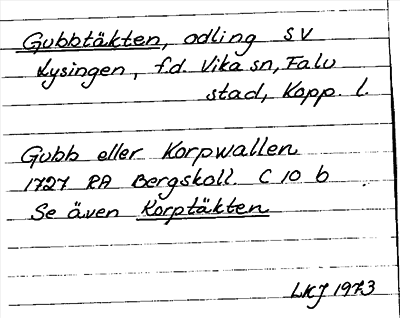 Gubbtäkten, odling SV
Lysingen, f.d. Vika sn, Falu
stad, Kopp. l.
Gubb eller Korpwallen
1727 RA Bergskoll. C 10 b
Se även Korptäkten
LKJ 1973